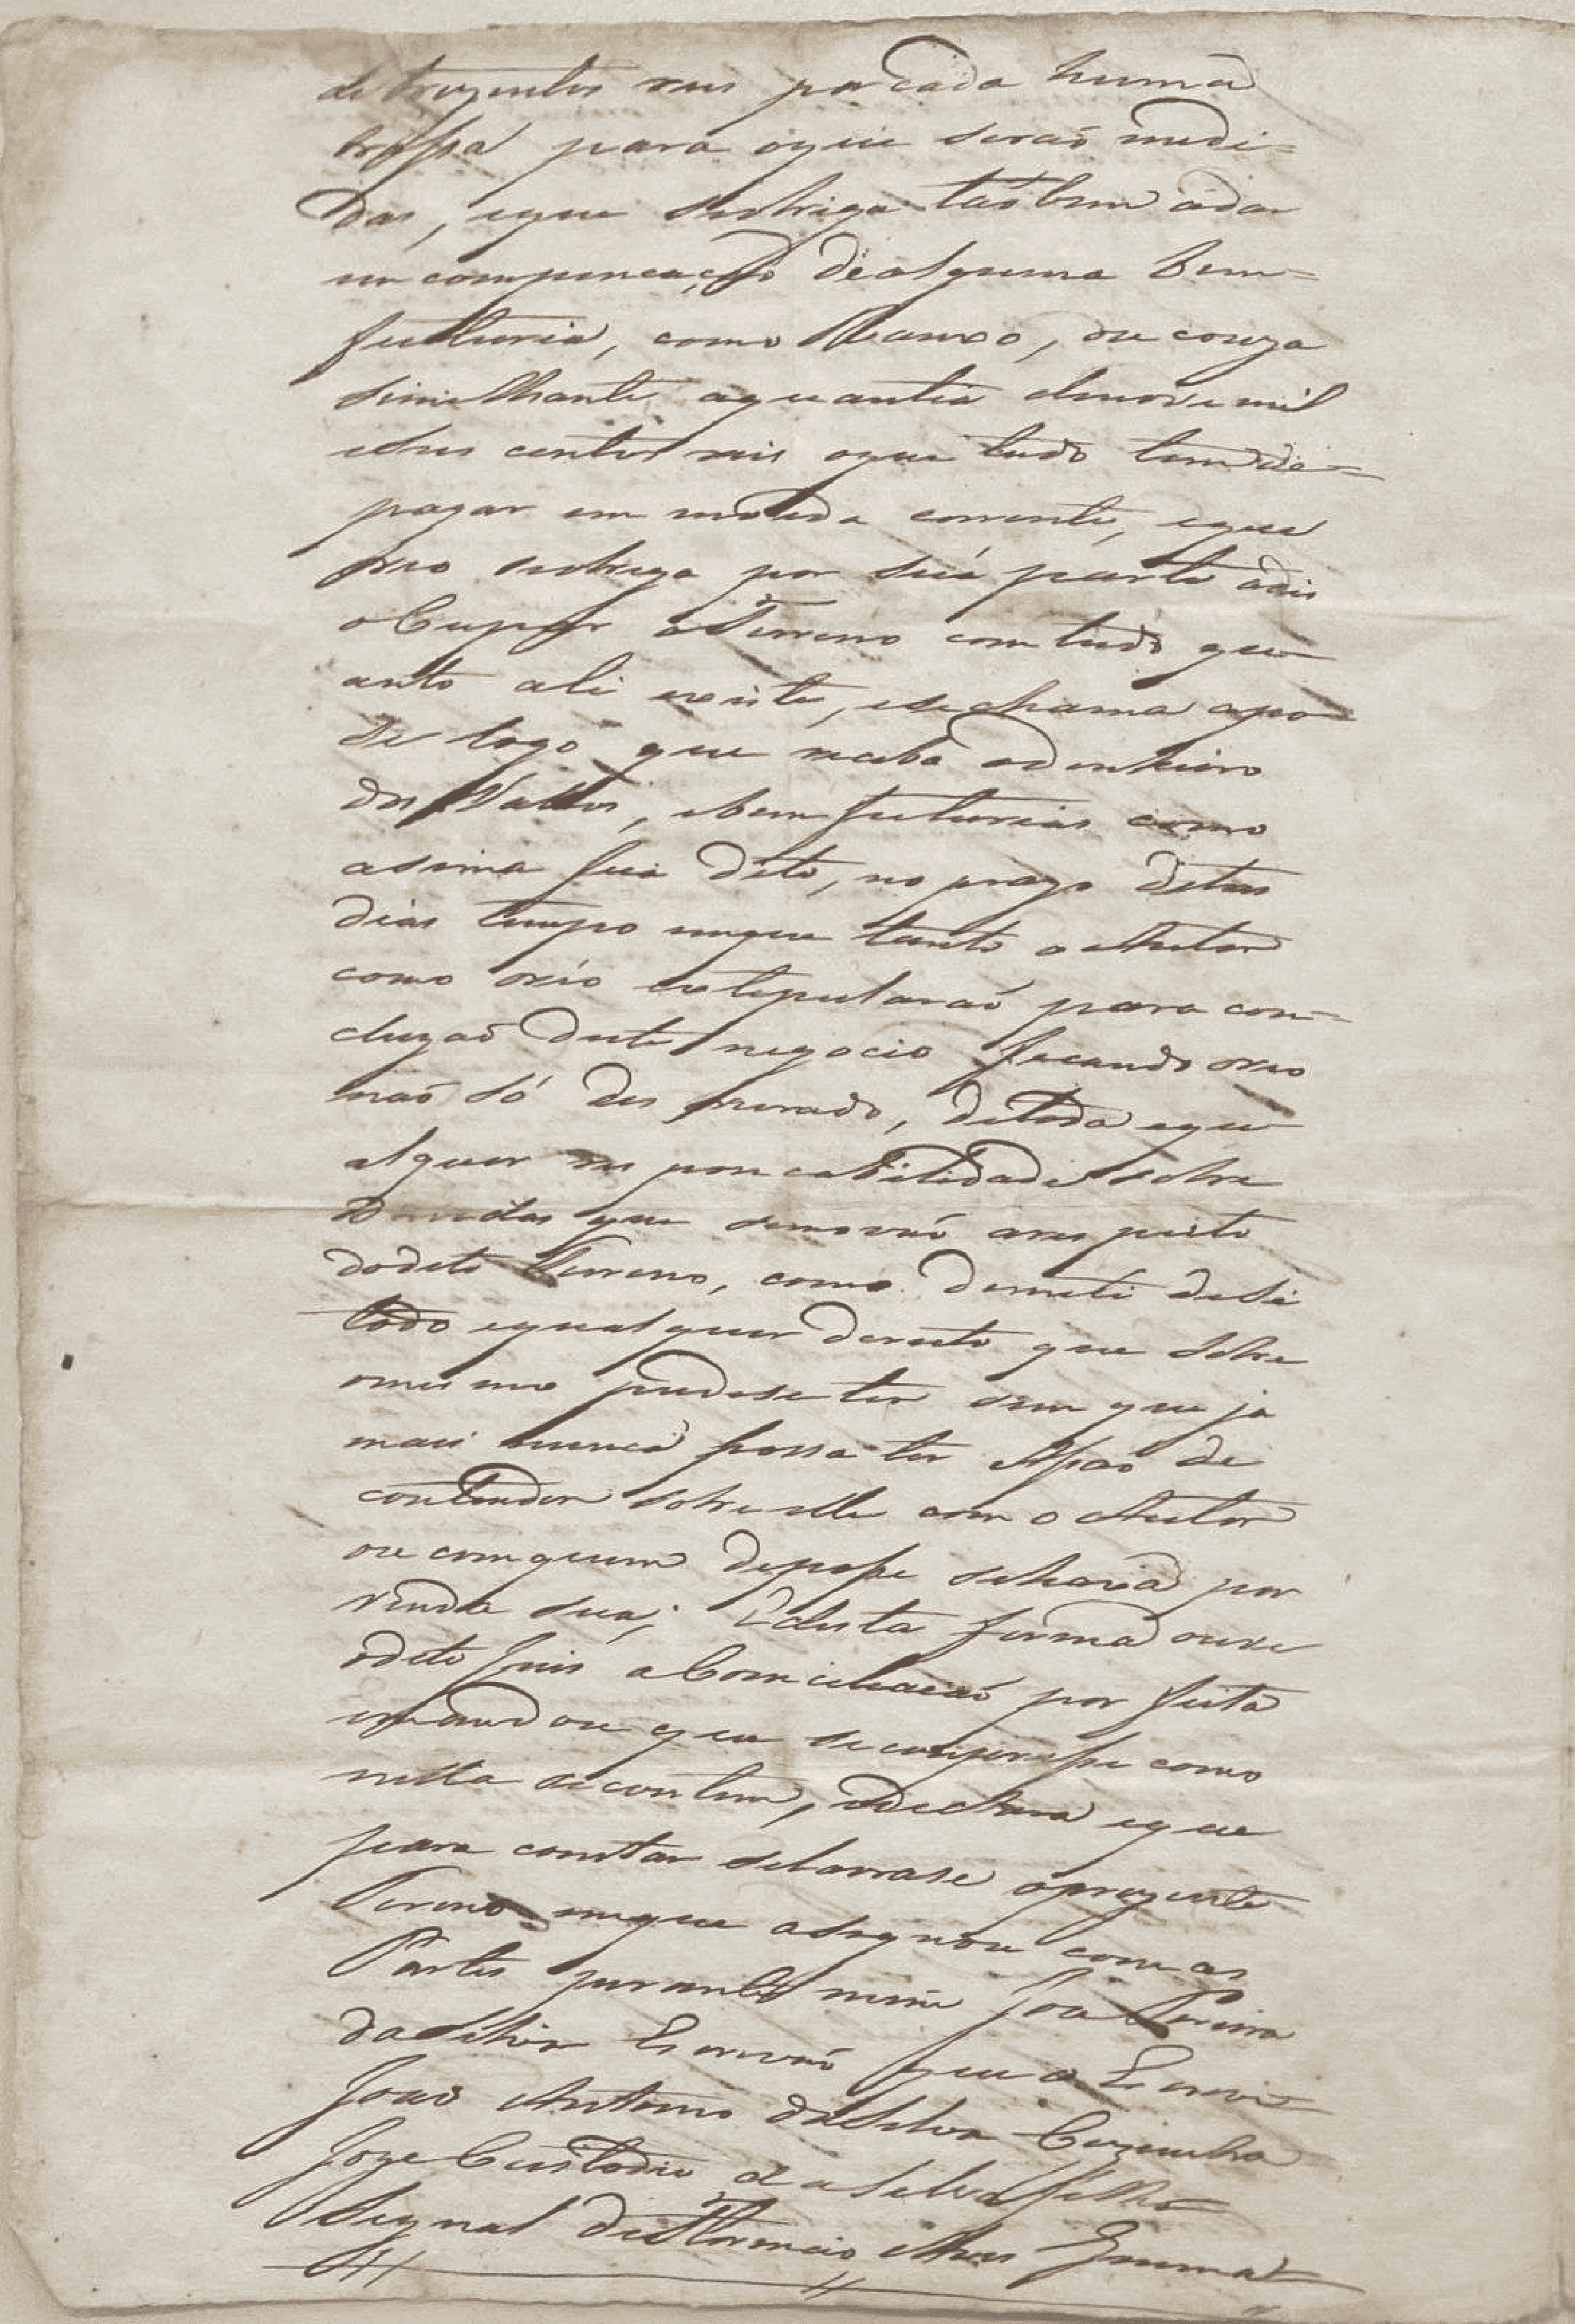 de trezentos reis por cada huma
brassa para oque seraõ medi=
das, eque seobriga taõbem adar
em compencação dealguma bem=
feituria, como Ranxo, ou couza
similhante aquantia denove mil
eseis centos reis oque tudo temde=
pagar em moeda corrente, eque
oreo seobriga por súa parte adis
oCupar oTerreno comtudo qu
anto ali existe, esechama apo
se logo que receba odinheiro
dos Vallos, ebemfeturias como
asima fica dito, no prazo detres
dias tempo emque tanto o Autor
como oréo extepularaõ para con=
cluzaõ deste negocio ficando oreo
naõ só des onerado, detoda equ
alquer res poncabilidade sobre
Duvidas que semovaõ arespeito
dodito Terreno, como demeti desi
todo equalquer dereito que sobre
omesmo pudese ter sem que ja
mais nunca possa ter Assaõ de
contender sobre elle com o Autor
ou comquem deposse seharà por
venda sua; Edesta forma ouve
odito Juis aConciliacaõ por feita
emandou que secumprisse como
nella secontem, edeclara eque
para constar selavrase oprezente
Termo emque asignou comas
Partes perante mim Joa Pereira
daSilva Escrivaõ que o Escrevi=
Joaõ Antonio daSilva Cuzinha
Joze Custodio da Silva filho
Signal deFlorencio Alves Gomma